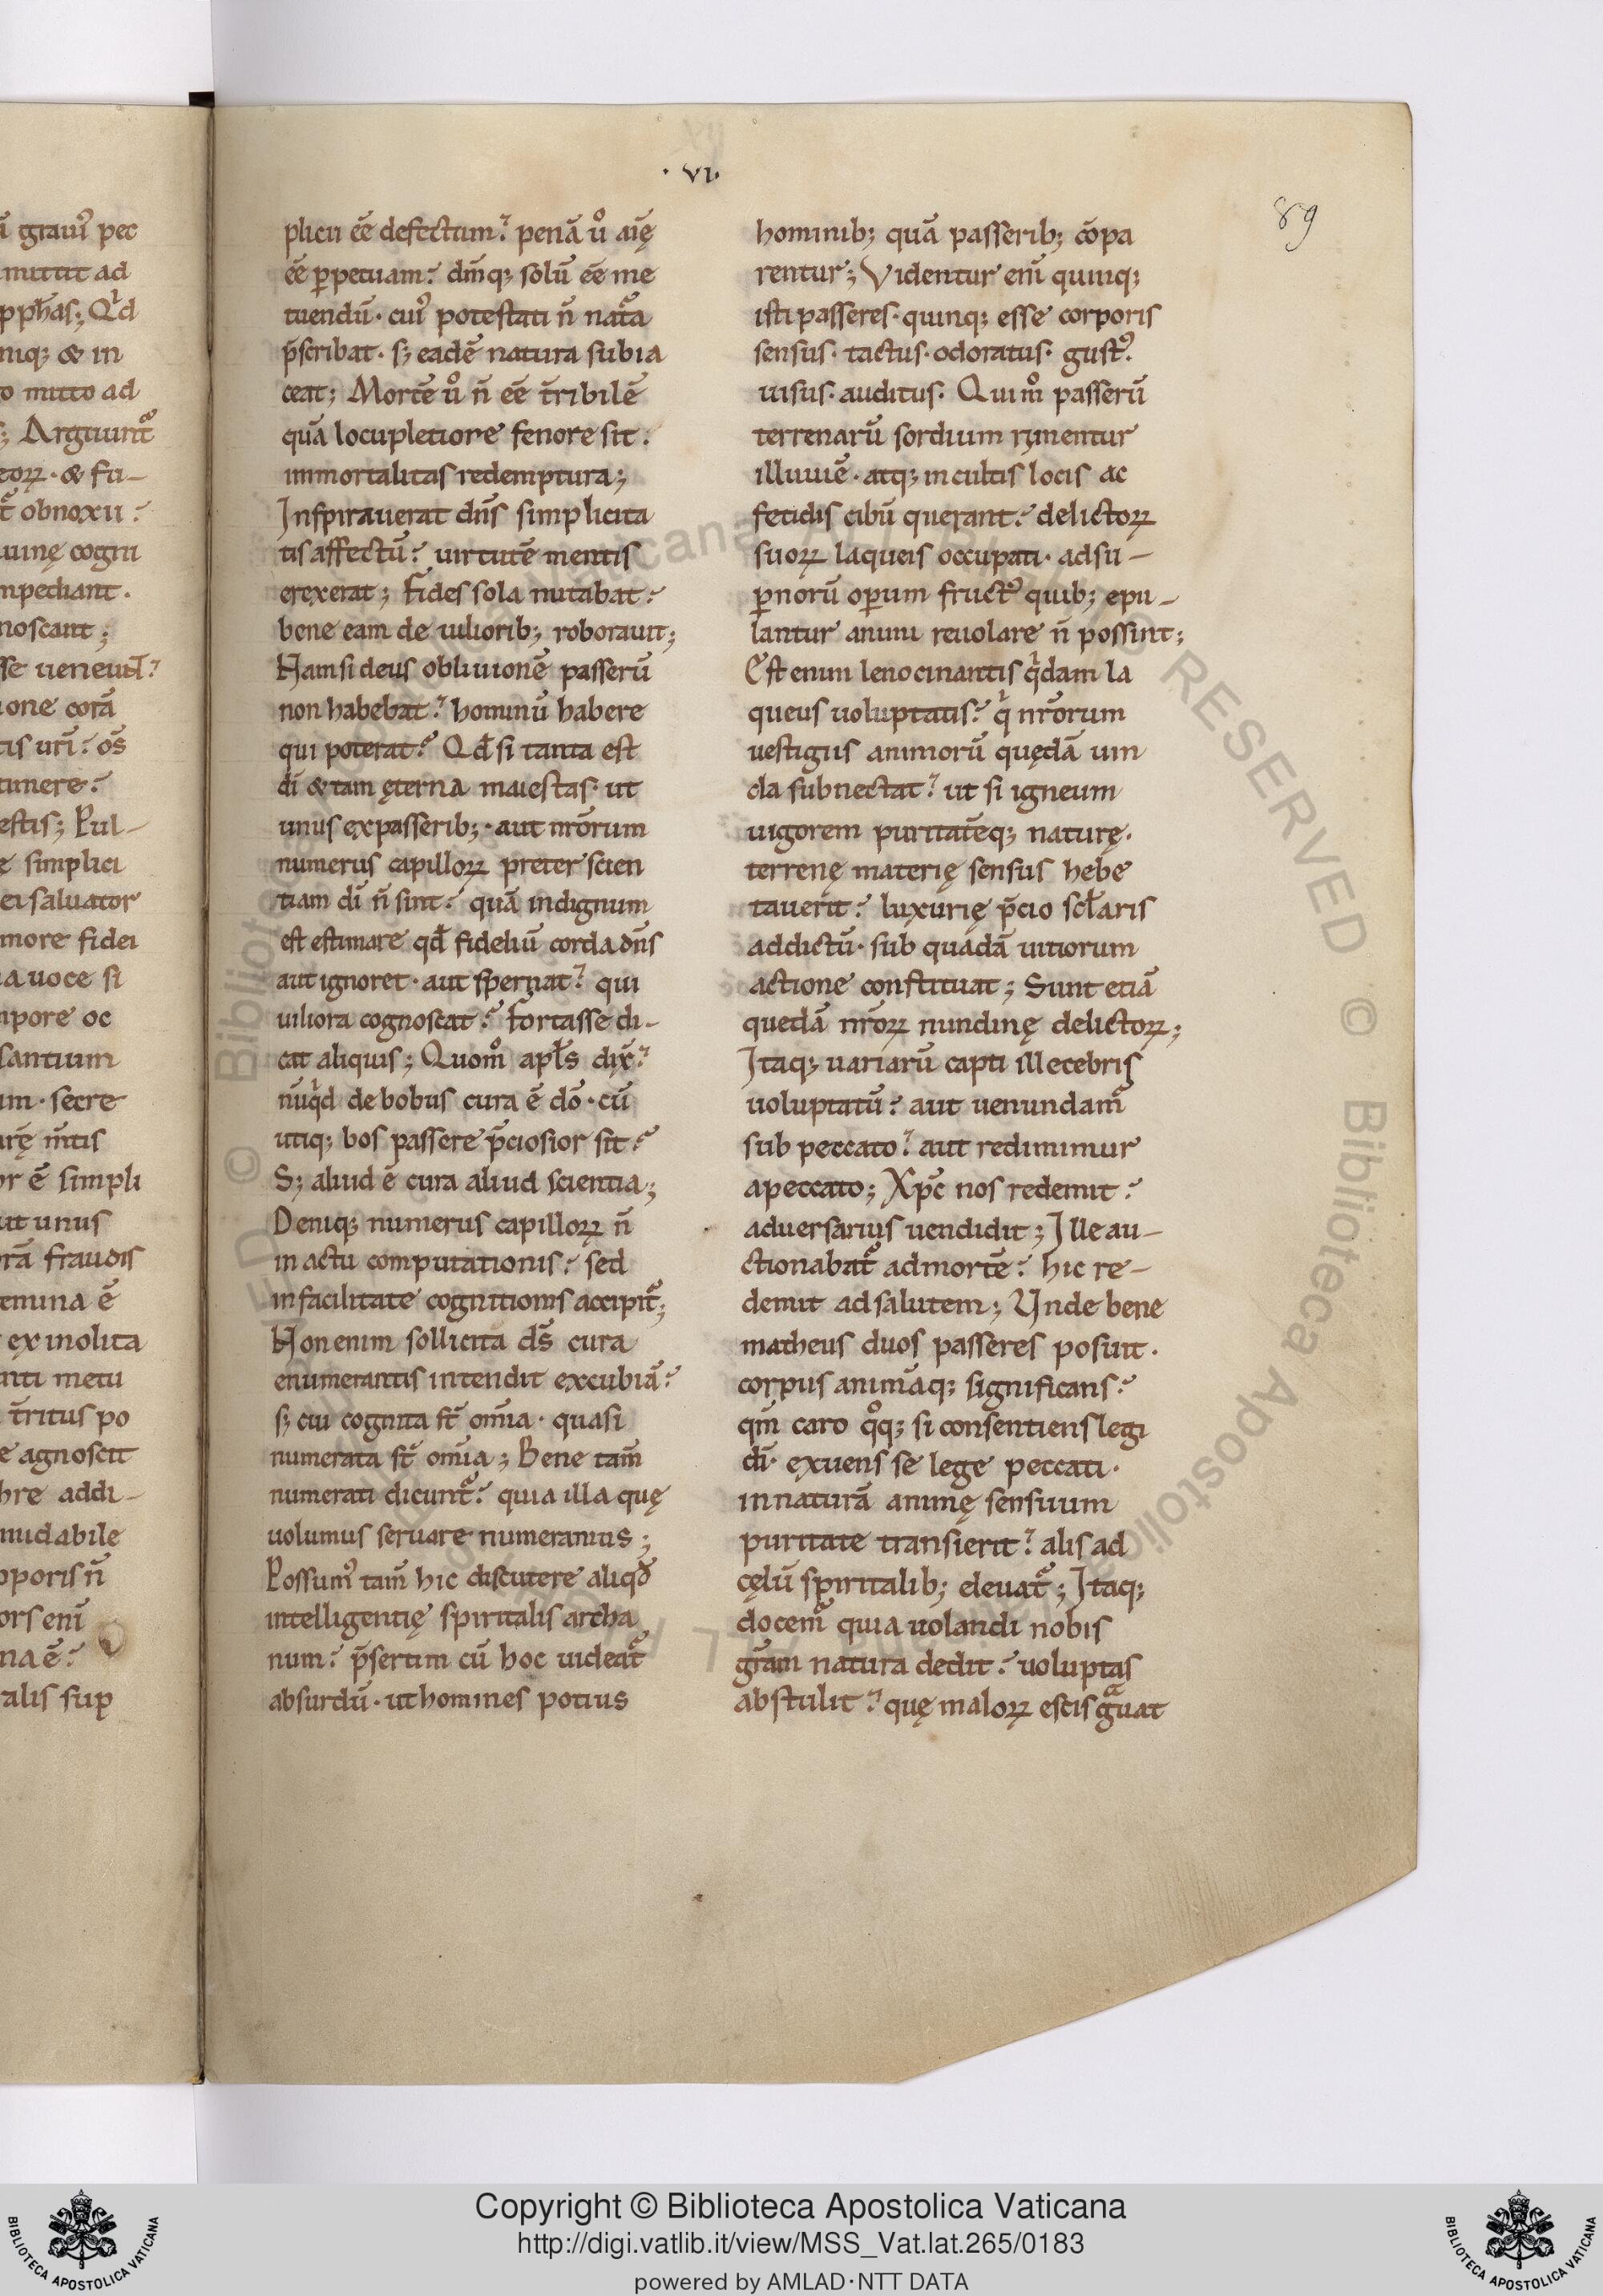 · vi·
89
plicii ēē defectum? penā ů aīę
ēē ꝑpetuam? dm̄q; solū ēē me
tuendū· cui᾿ potestati n̄ nat᷑a
p̄scribat· s; eadē natura subia
ceat; Mortē ů n̄ ēē t̄ribilē
quā locupletiore fenore sit?
immortalitas redemptura;
Inspirauerat dn̄s simplicita
tis affectū? uirtutē mentis
erexerat; Fides sola nutabat?
bene eam de uiliorib; roborauit;
Nam si deus obliuionē passerū
non habebat? hominū habere
qui poterat? Qđ si tanta est
dī & tam ęterna maiestas· ut
unus ex passerib;· aut nr̄orum
numerus capilloꝝ preter scien
tiam dī n̄ sint? quā indignum
est estimare qđ fideliū corda dn̄s
aut ignoret· aut spernat? qui
uiliora cognoscat? Fortasse di-
cat aliquis; Quom̊ apl̄s dix̄?
nūqͥd de bobus cura ē dō· cū
utiq; bos passere p̄ciosior sit?
S; aliud ē cura aliud scientia;
Deniq; numerus capilloꝝ n̄
in actu computationis? sed
in facilitate cognitionis accipit᷑;
Non enim sollicita ds̄ cura
enumerantis intendit excubiā?
s; cui cognita st̄ om̄ia· quasi
numerata st̄ om̄ia; Bene tam̄
numerati dicunt᷑? quia illa quę
uolumus seruare numeramus;
Possum᾿ tam̄ hic discutere aliqđ
intelligentię spiritalis archa
num? p̄sertim cū hoc uideat᷑
absurdū· ut homines potius
hominib; quā passerib; cōpa
rentur; Videntur enī quinq;
isti passeres· quinq; esse corporis
sensus· tactus· odoratus· gust᾿·
uisus· auditus· Qui m̊ passerū
terrenarū sordium rimentur
illuuiē· atq; incultis locis ac
fetidis cibū querant? delictoꝝ
suoꝝ laqueis occupati· ad su-
ꝑnorū oꝑum fruct᾿ quib; epu-
lantur animi reuolare n̄ possint;
Est enim lenocinantis qͥdam la
queus uoluptatis? qͥ nr̄orum
uestigiis animorū quędā uin
cla subnectat? ut si igneum
uigorem puritatēq; naturę·
terrenę materię sensus hebe
tauerit? luxurię p̄cio scl̄aris
addictū· sub quadā uitiorum
actione constituat; Sunt etiā
quedā nr̄oꝝ nundinę delictoꝝ;
Itaq; uariarū capti illecebris
uoluptatū? aut uenundam᷑
sub peccato? aut redimimur
a peccato; Xp̄c nos redemit?
aduersarius uendidit; Ille au-
ctionabat᷑ ad mortē? hic re-
demit ad salutem; Unde bene
matheus duos passeres posuit·
corpus animāq; significans?
qm̄ caro q̊q; si consentiens legi
dī· exuens se lege peccati·
in naturā animę sensuum
puritate transierit? alis ad
cęlū spiritalib; eleuat᷑; Itaq;
docem᷑ quia uolandi nobis
gr̄am natura dedit? uoluptas
abstulit? quę maloꝝ escis gͣuat
Copyright © Biblioteca Apostolica Vaticana
http://digi.vatlib.it/view/MSS_Vat.lat.265/0183
powered by AMLAD·NTT DATA